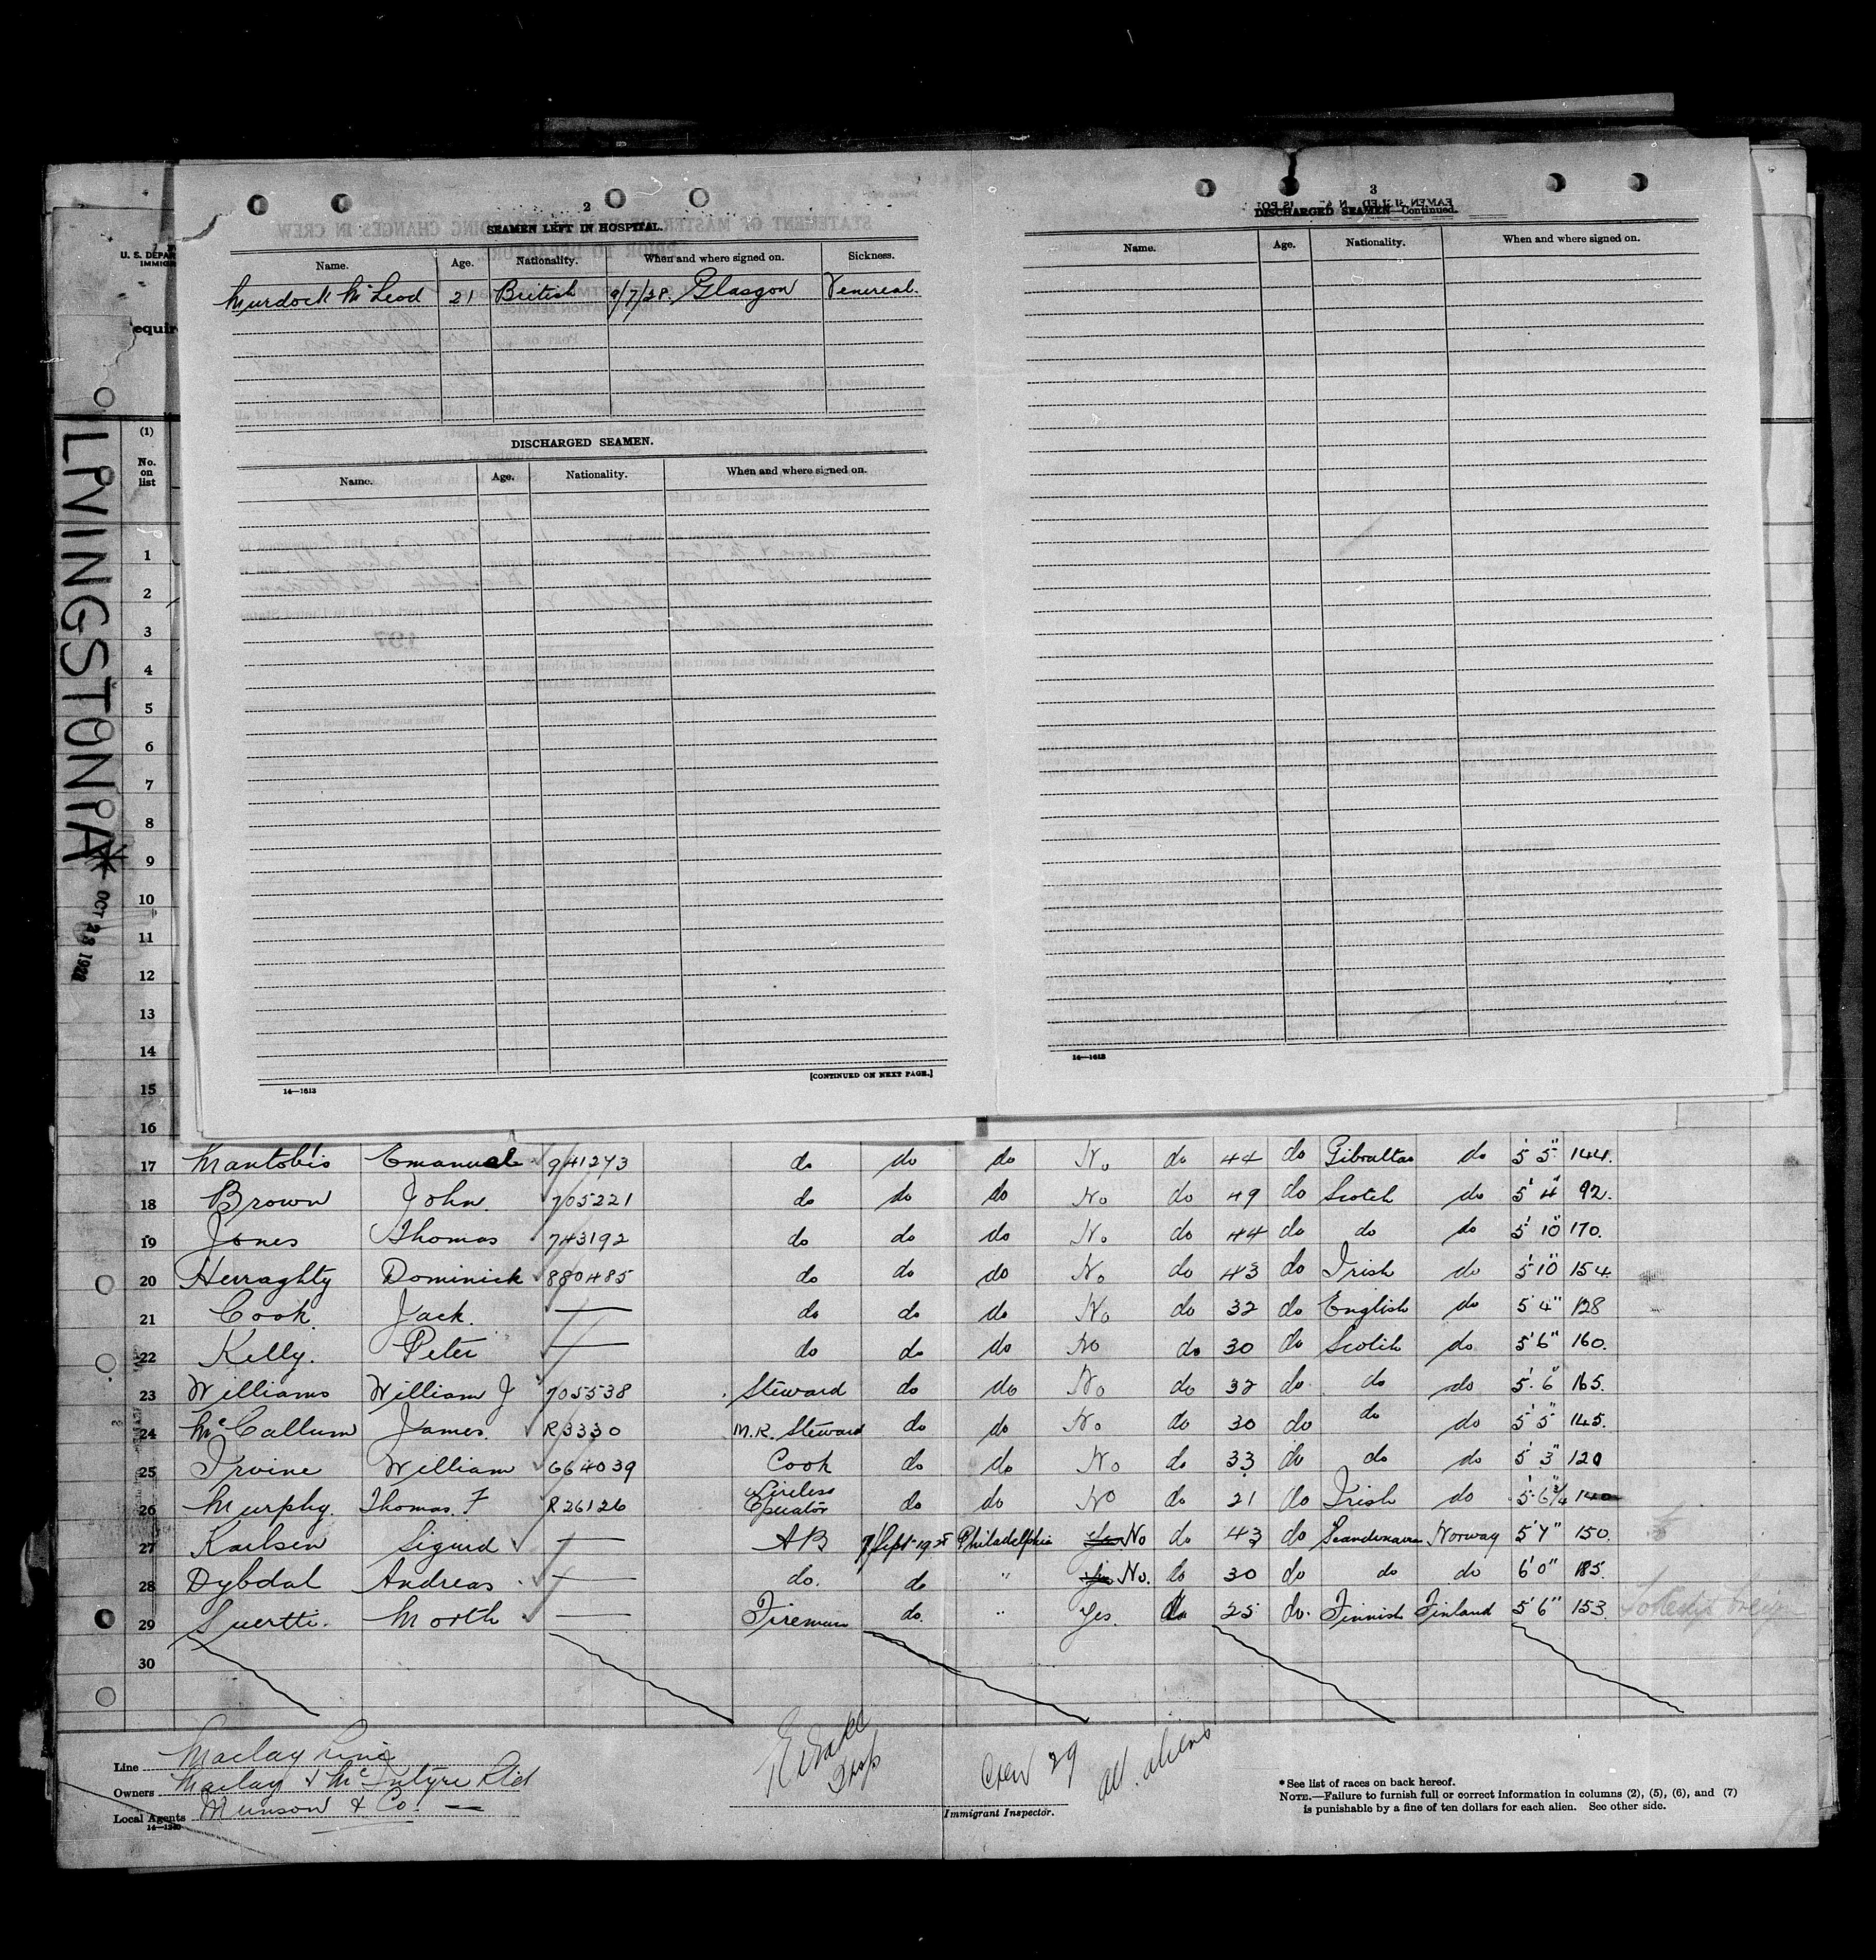 2
SEAMEN LEFT IN HOSPITAL.
Name. Age. Nationality. When and where signed on. Sickness.
Murdock McLeod 21 British 9/7/28. Glasgow Venereal.
DISCHARGED SEAMEN.
Name. Age. Nationality. When and where signed on.
14—1613
[CONTINUED ON NEXT PAGE.]
3
DISCHARGED SEAMEN—Continued.
Name. Age. Nationality. When and where signed on.
14—1613
U. S. DEPAR
IMMIGR
equir
LIVINGSTONIA
OCT 23 1928
(1)
No.
on
list
1
2
3
4
5
6
7
8
9
10
11
12
13
14
15
16
17 Emanuel 941273 do do do No do 44 do Gibraltar do 5' 5" 144.
18 Brown John. 705221 do do do No do 49 do Scotch do 5' 4" 92.
19 Jones Thomas 743192 do do do No do 44 do do do 5' 10" 170.
20 Herraghty Dominick 880485 do do do No do 43 do Irish do 5' 10" 154
21 Cook. Jack. — do do do No do 32 do English do 5' 4" 128
22 Kelly. Peter — do do do No do 30 do Scotch do 5' 6" 160.
23 Williams William J 705538 Steward do do No do 32 do do do 5' 6" 165.
24 McCallum James. R3330 M.R. Steward do do No do 30 do do do 5' 5" 145.
25 Irvine William 664039 Cook do do No do 33 do do do 5' 3" 120
26 Murphy. Thomas. F R26126 Wireless Operator do do No do 21 do Irish do 5' 6 3/4" 140
27 Karlsen Sigurd — AB Philadelphia Yes No do 43 do Scandinavian Norway 5' 7" 150.
28 Dybdal Andreas — do. do " Yes No. do 30 do do do 6' 0" 185.
29 Suertti. Morth — Fireman do. " Yes. do 25 do. Finnish Finland 5' 6" 153
30
Line Maclay Line
Owners Maclay & McIntyre Ltd
Local Agents Munson & Co. —
14—1240
Immigrant Inspector.
Crew 29
all aliens
*See list of races on back hereof.
NOTE.—Failure to furnish full or correct information in columns (2), (5), (6), and (7)
is punishable by a fine of ten dollars for each alien. See other side.